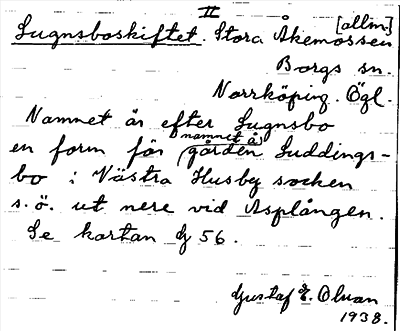 II
Lugnsboskiftet. Stora Åkemossen [allm.]
Borgs sn.
Norrköping. Ögl.
Namnet är efter Lugnsbo
en form för namnet å gården Luddings-
bo i Västra Husby socken
s.ö. ut nere vid Asplången.
Se kartan G 56.
Gustaf E. Olsson
1938.